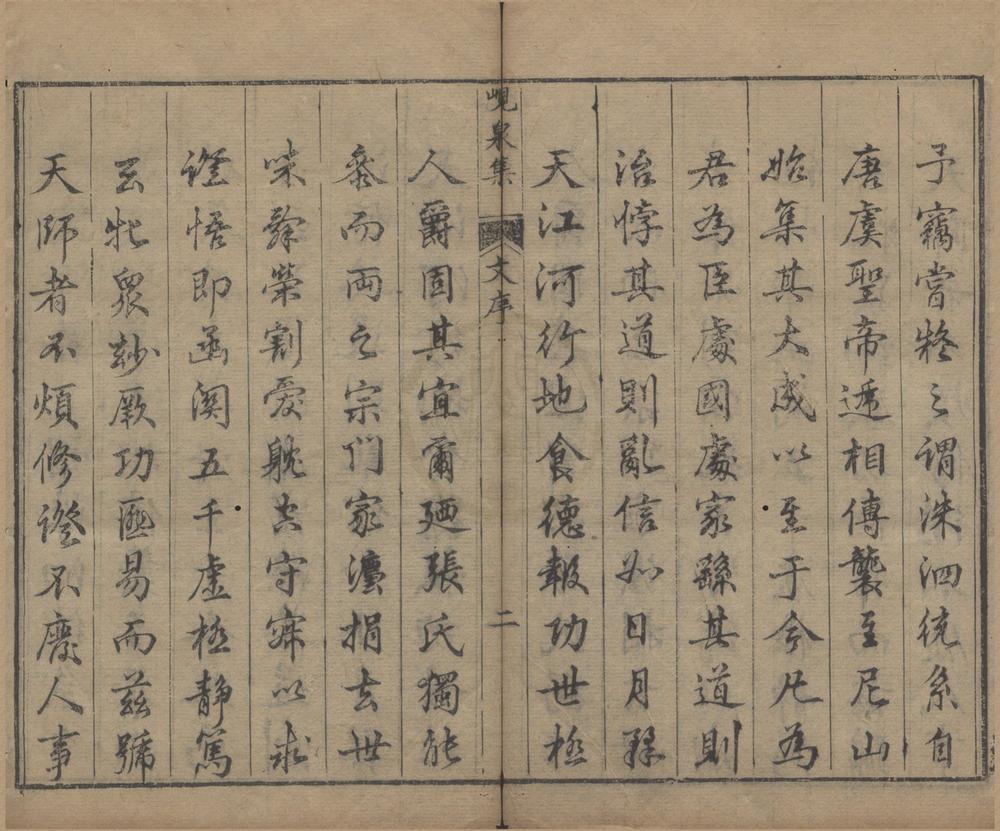 予竊嘗疑之謂洙泗統系自
唐虞聖帝遞相傳襲至尼山
始集其大成以至于今凡為
君為臣處國處家繇其道則
治悖其道則亂信如日月繇
天江河行地食德報功世極
峴泉集
文序
二
人爵固其宜爾廼張氏獨能
叅而兩之宗門家灋捐去世
味辭榮割愛躭空守寂以求
證悟即函関五千虛極静篤
玄牝衆玅厥功匪易而茲號
天師者不煩修證不廢人事